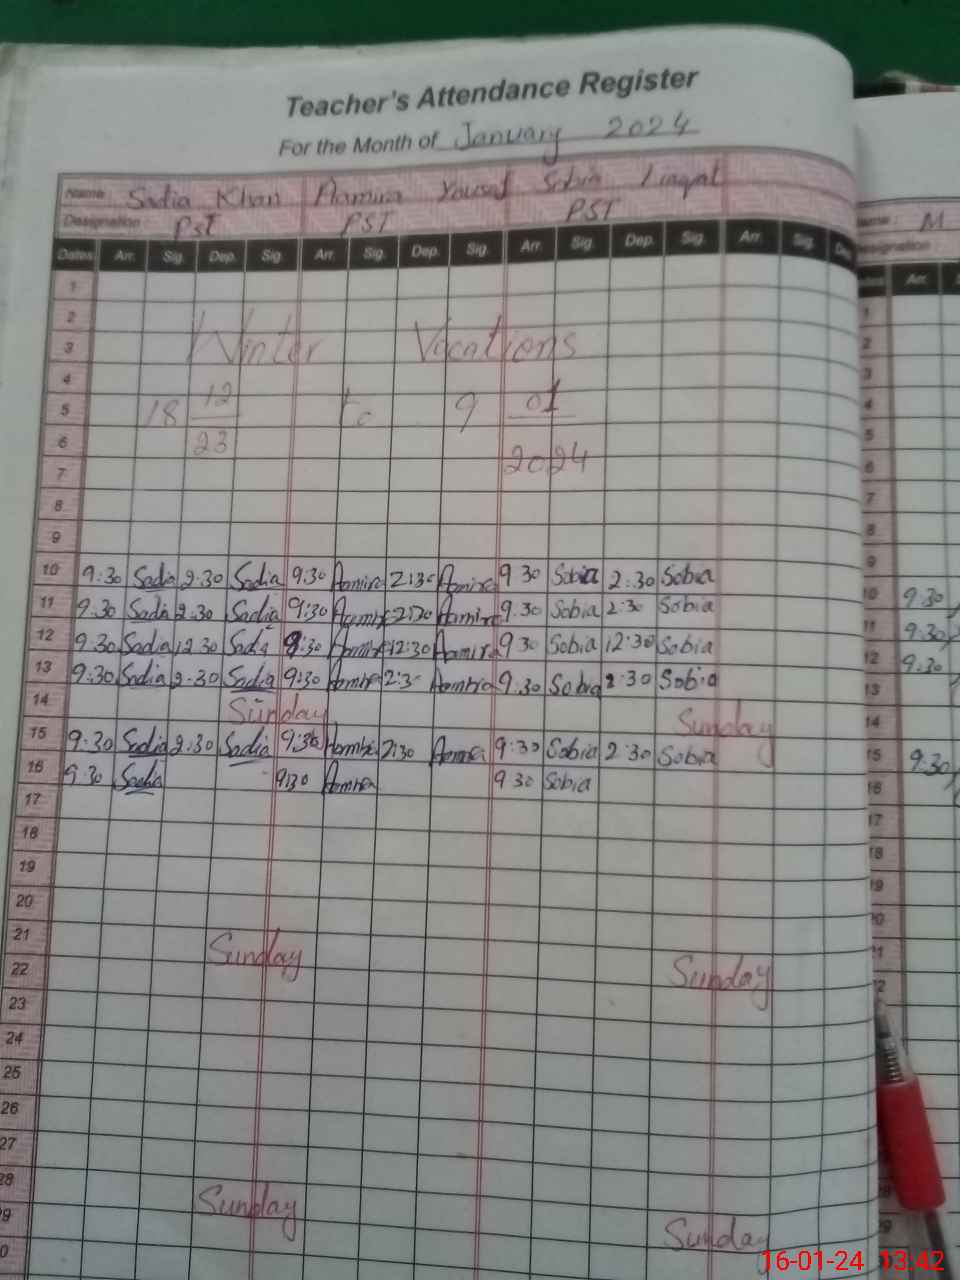 Teacher's Attendance Register
For the Month of January 2024
Name Sadia Khan Aamira Yousaf Sobia Liaqat
Designation PST PST PST
Dates Arr. Sig. Dep. Sig. Arr. Sig. Dep. Sig. Arr. Sig. Dep. Sig. Arr. Sig. Dep
1
2
3 Winter Vacations
4
5 18 12 to 9 01
6 23
7 2024
8
9
10 9:30 Sadia 2:30 Sadia 9:30 Aamira 2:30 Aamira 9 30 Sobia 2:30 Sobia
11 9.30 Sadia 2.30 Sadia 9:30 Aamira 2:30 Aamira 9.30 Sobia 2:30 Sobia
12 9.30 Sadia 12.30 Sadia 9:30 Aamira 12:30 Aamira 9 30 Sobia 12:30 Sobia
13 9:30 Sadia 2.30 Sadia 9:30 Aamira 2:3 Aamira 9.30 Sobia 2:30 Sobia
14 Sunday Sunday
15 9:30 Sadia 2:30 Sadia 9:30 Aamira 2:30 Aamira 9:30 Sobia 2:30 Sobia
16 9:30 Sadia 9:30 Aamira 9 30 Sobia
17
18
19
20
21 Sunday
22 Sunday
23
24
25
26
27
28 Sunday
9 Sunday
0
ame : M
esignation :
Arr.
1
2
3
4
5
6
7
8
9
10 9:30
11 9:30
12 9:30
13
14
15 9:30
16
17
18
19
20
21
29
16-01-24 13:42